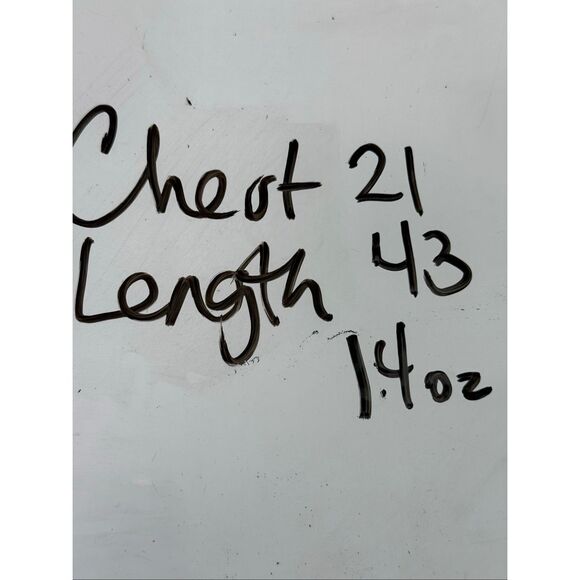 Chest 21
Length 43
1.4 oz